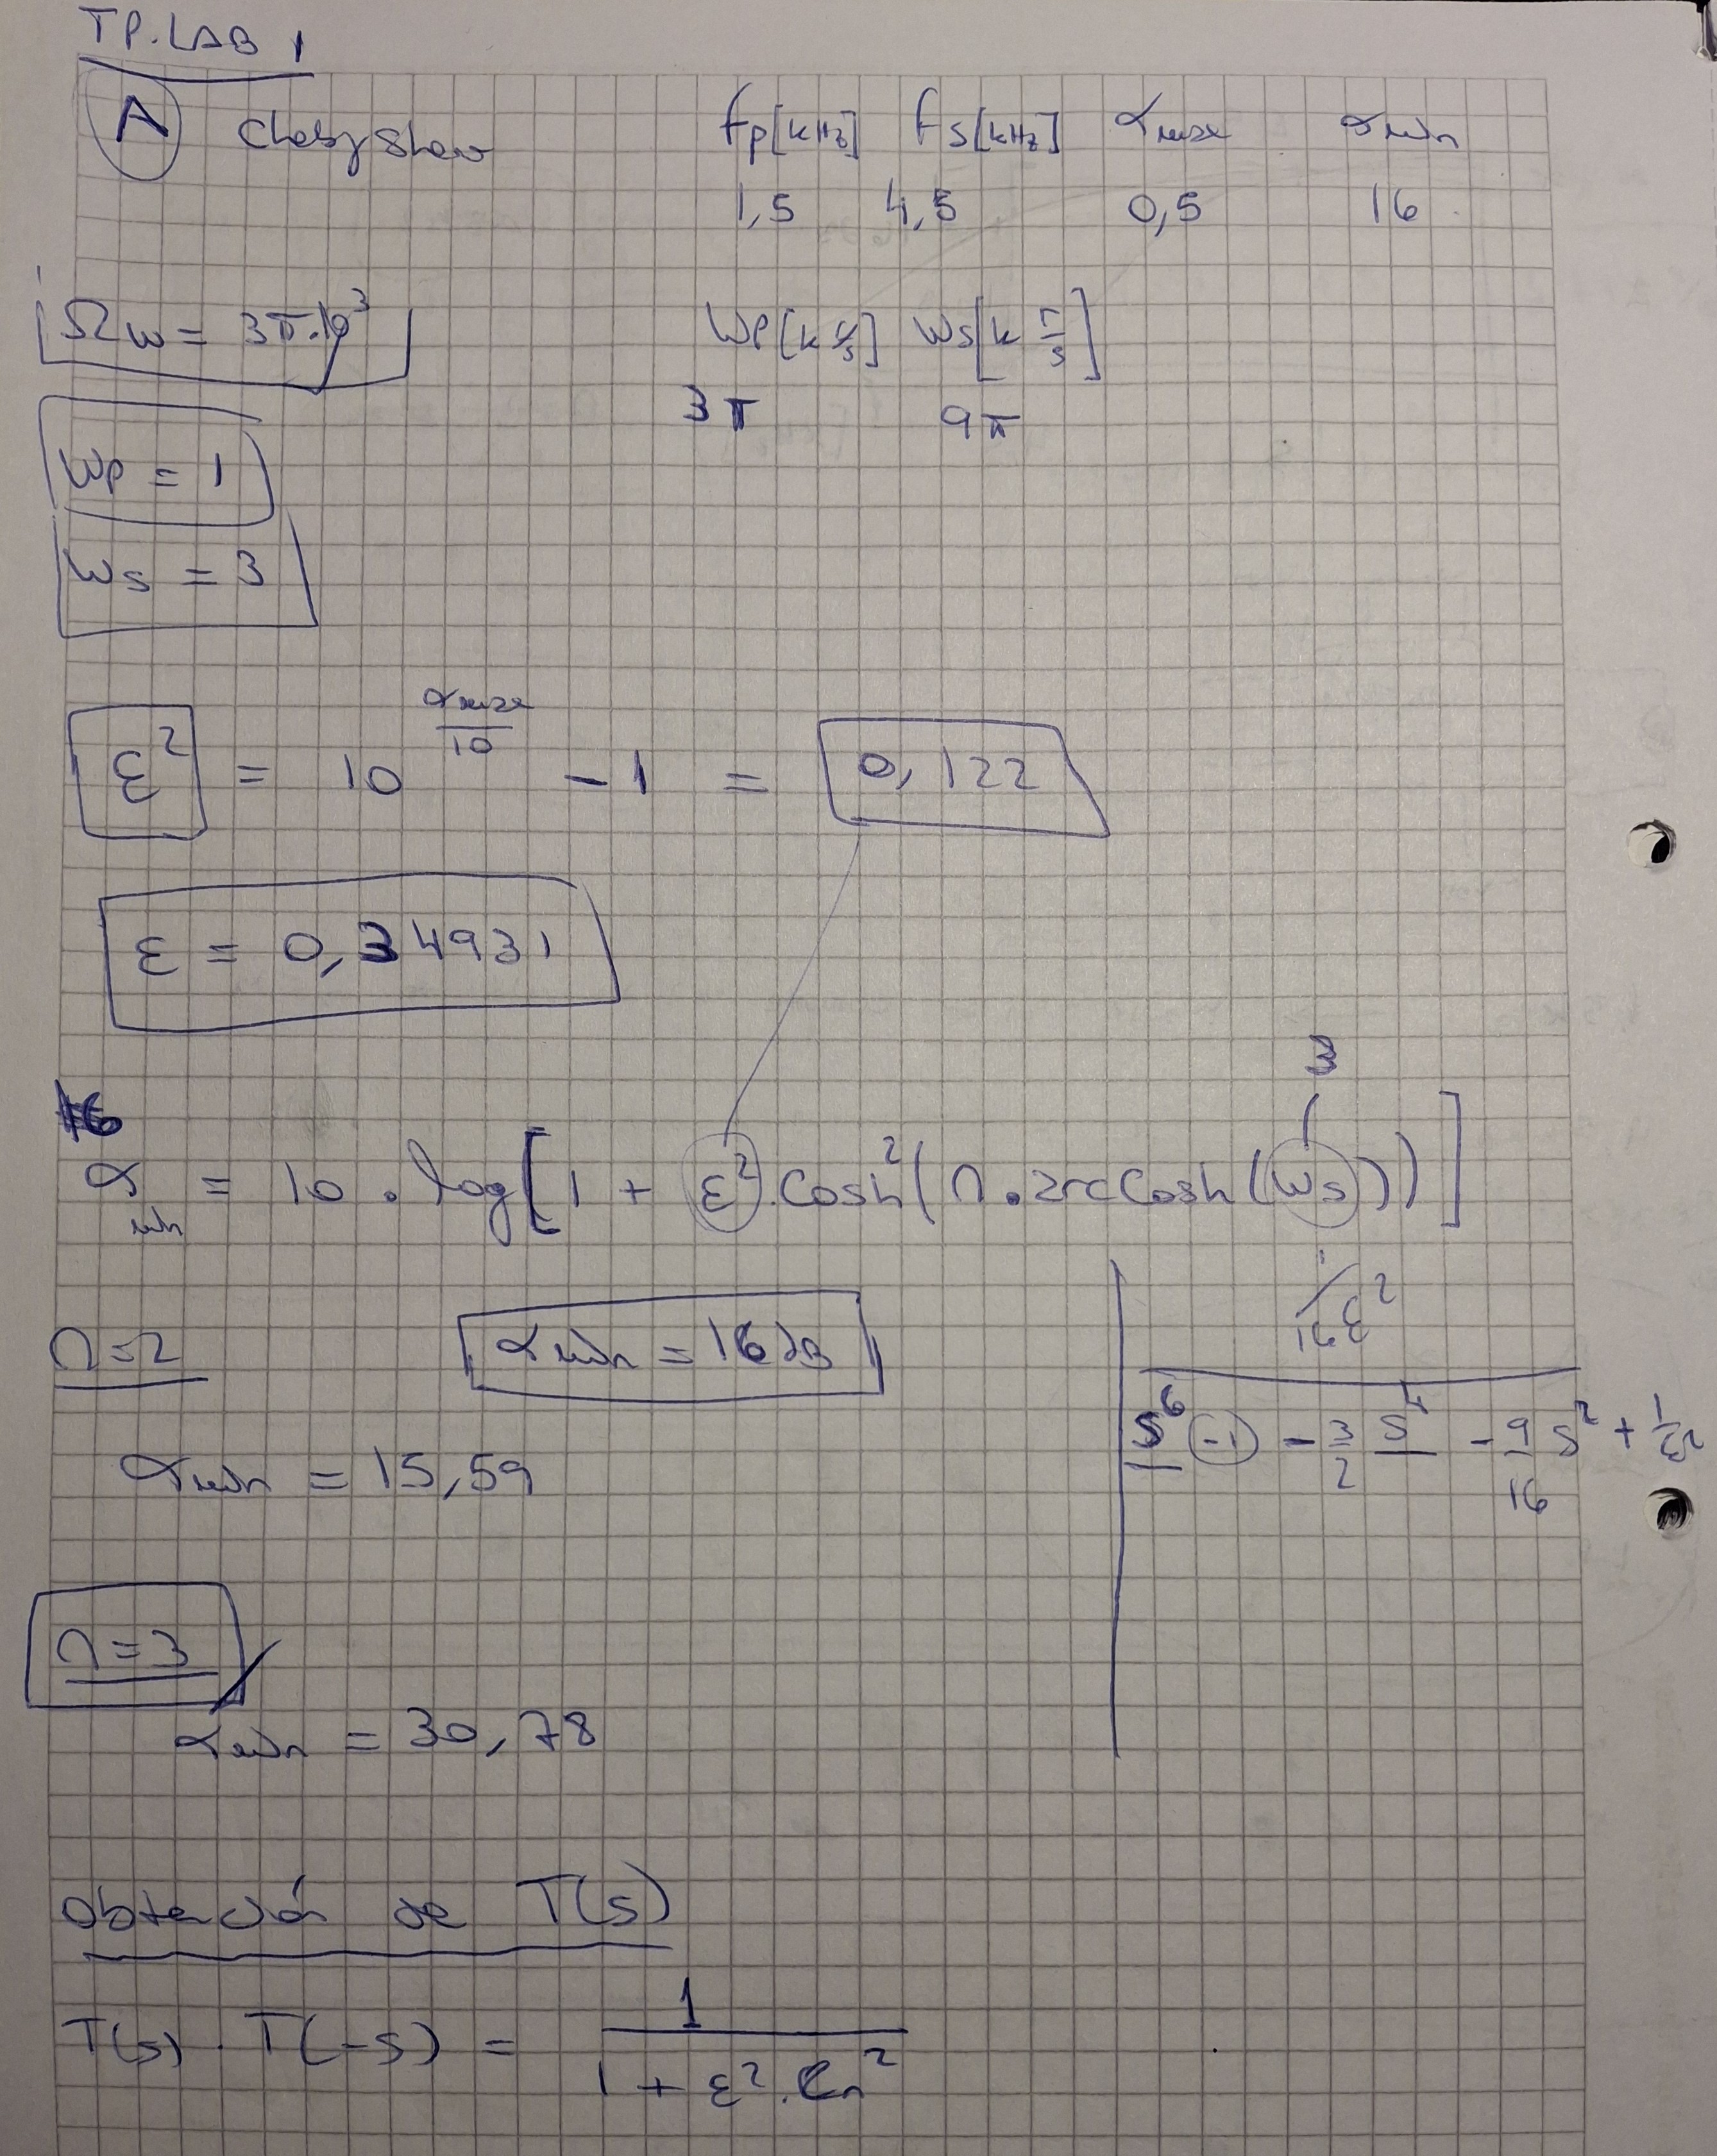 TP.LAB 1
A Chebyshev fp[kHz] fs[kHz] αmax αmin
1,5 4,5 0,5 16
Ωw = 3π.10³ Wp[k r/s] Ws[k r/s]
3π 9π
Wp = 1
Ws = 3
ε² = 10^(αmax/10) - 1 = 0,122
ε = 0,34931
3
16
αmin = 10 . log[1 + ε².cosh²(n.arcCosh(Ws))]
n=2 αmin = 16dB 1/16ε²
αmin = 15,59 s⁶(-1) - 3/2 s⁴ - 9/16 s² + 1/ε²
n=3
αmin = 30,78
Obtención de T(s)
T(s) . T(-s) = 1/(1 + ε².Cn²)